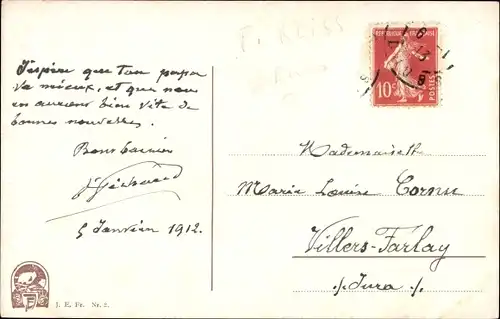 J'espère que ton papa
va mieux, et que nous
en aurons bien vite de
bonnes nouvelles.
Bons baisers
5 Janvier 1912.
J. E. Fr. Nr. 2.
REPUBLIQUE FRANÇAISE
10c
POSTES
Mademoiselle
Marie Louise Cornu
Villers-Farlay
./Jura/.